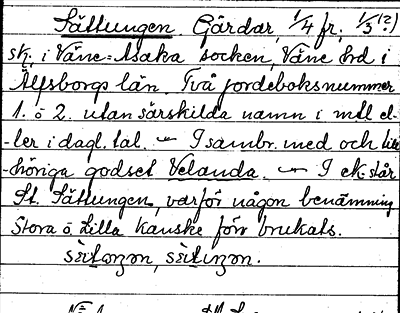 Sättungen Gärdar, 1/4 fr, 1/3 (?)
sk. i Väne=Åsaka socken, Väne hrd i
Älfsborgs län. Två jordeboksnummer
1. o 2. utan särskilda namn i mtl el-
-ler i dagl. tal. – I sambr. med och till-
-höriga godset Velanda. – I ek. står
St. Sättungen, varför någon benämning
Stora o Lilla kanske förr brukats.